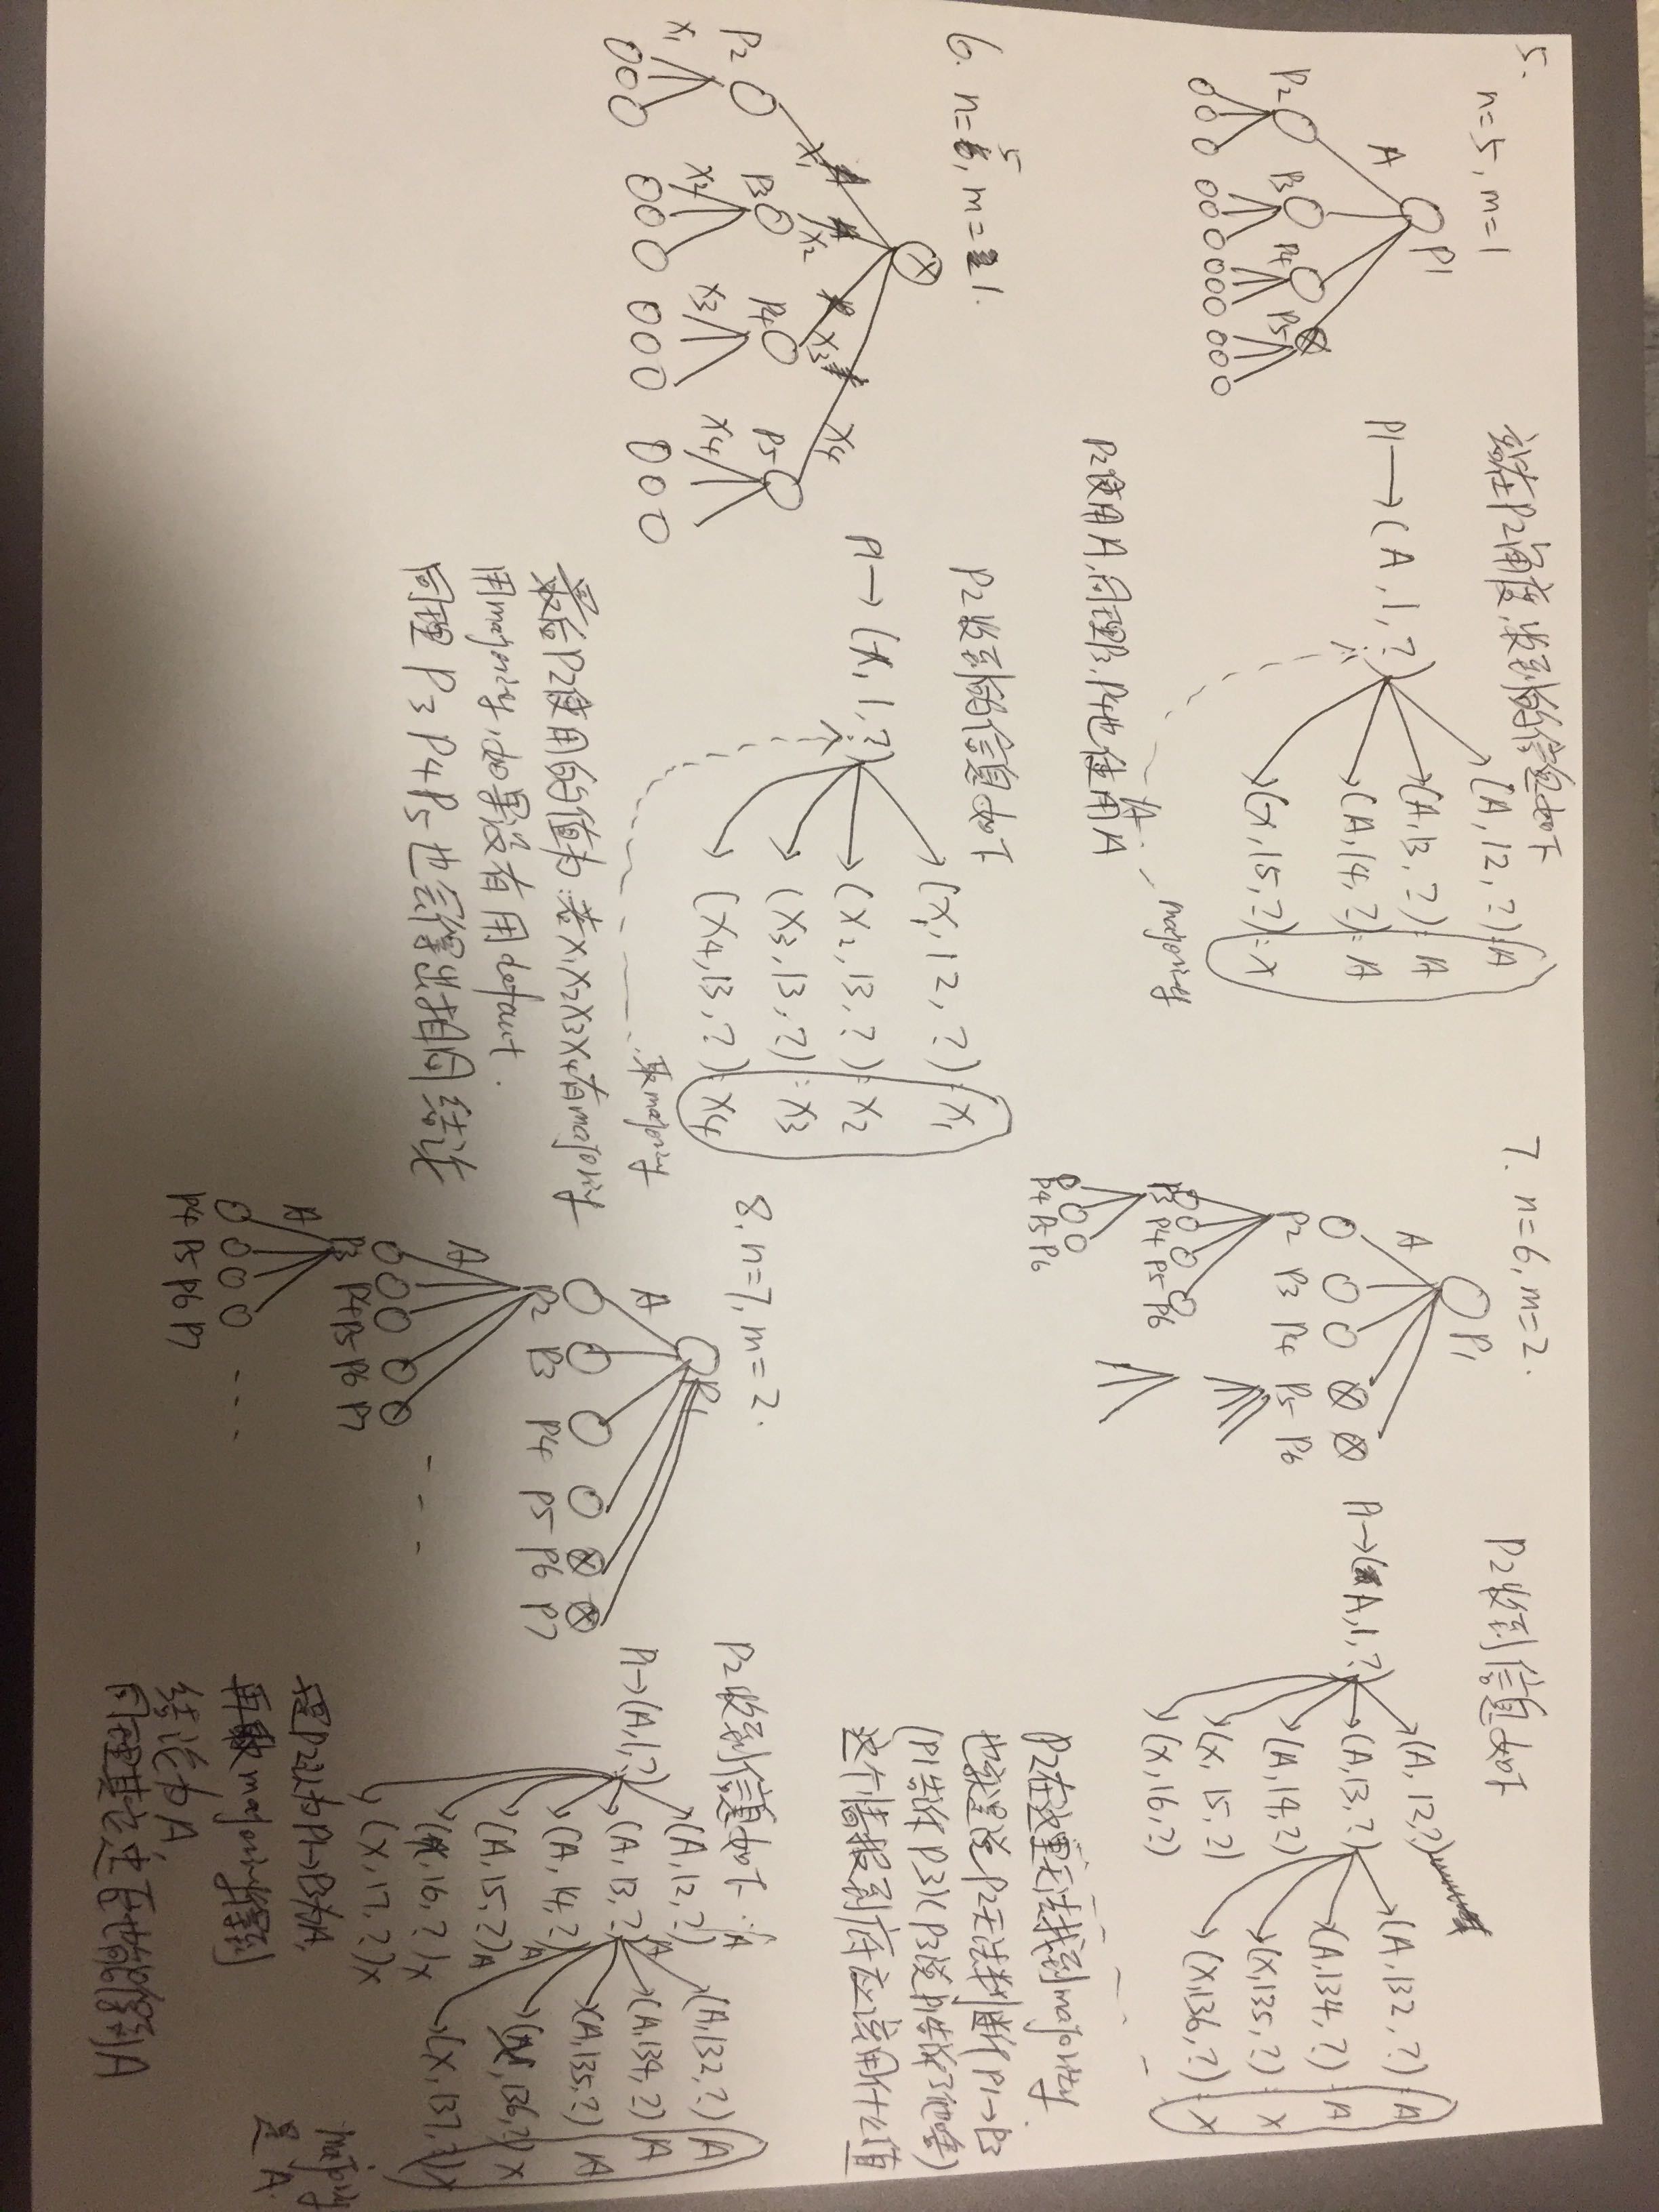 5. n=5, m=1
P1
A
P2 P3 P4 P5
站在P2角度,收到的信息如下
P1→(A,1,?)
(A,12,?):A
(A,13,?):A
(A,14,?):A
(X,15,?):X
majority
P2使用A,同理P3,P4也使用A
6. n=5, m=1.
X1 X2 X3 X4
P2 P3 P4 P5
X1 X2 X3 X4
P2收到的信息如下
P1→(X,1,?)
(X1,12,?):X1
(X2,13,?):X2
(X3,13,?):X3
(X4,13,?):X4
取majority
最后P2使用的值为:若X1X2X3X4有majority
用majority,如果没有用default.
同理P3P4P5也会得出相同结论
7. n=6, m=2.
P1
A
P2 P3 P4 P5 P6
P3 P4 P5 P6
P4 P5 P6
P2收到信息如下
P1→(A,1,?)
(A,12,?)
(A,13,?)
(A,14,?)
(X,15,?)
(X,16,?)
(A,132,?):A
(A,134,?):A
(X,135,?):X
(X,136,?):X
P2在这里无法找到majority.
也就是说P2无法判断P1→P3
(P1告诉P3)(P3说P1告诉了他啥)
这个情报到底应该用什么值
8. n=7, m=2.
P1
A
P2 P3 P4 P5 P6 P7
A
P3 P4 P5 P6 P7
A
P4 P5 P6 P7
P2收到信息如下
P1→(A,1,?)
(A,12,?) A
(A,13,?) A
(A,14,?) A
(A,15,?) A
(X,16,?) X
(X,17,?) X
(A,132,?) A
(A,134,?) A
(A,135,?) A
(X,136,?) X
(X,137,?) X
majority
是A.
P2认为P1→P3为A,
再取majority得到
结论为A,
同理其它进程也能得到A